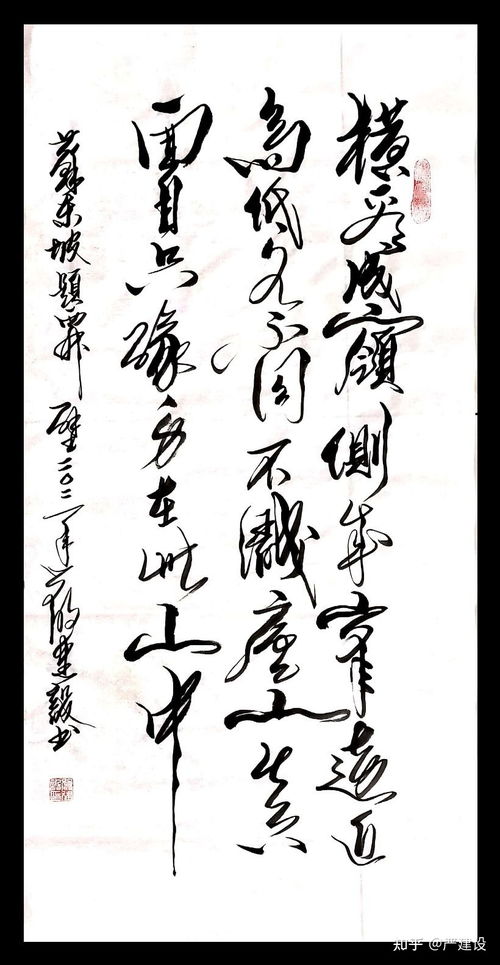 橫看成嶺側成峯遠近
高低各不同不識廬山真
面目只緣身在此山中
蘇東坡題西林壁二〇二一年建毅书
知乎 @严建设